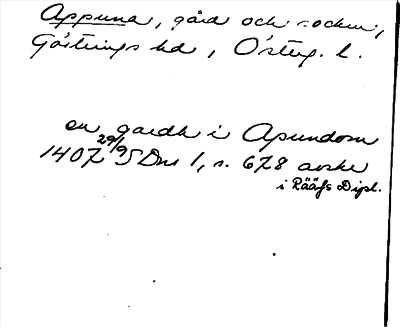 Appuna, gård och socken,
Göstrings hd, Österg. l.
en gardh i Apundom
1407 29/9 SDns 1, s. 678 avskr
i Rääfs Dipl.